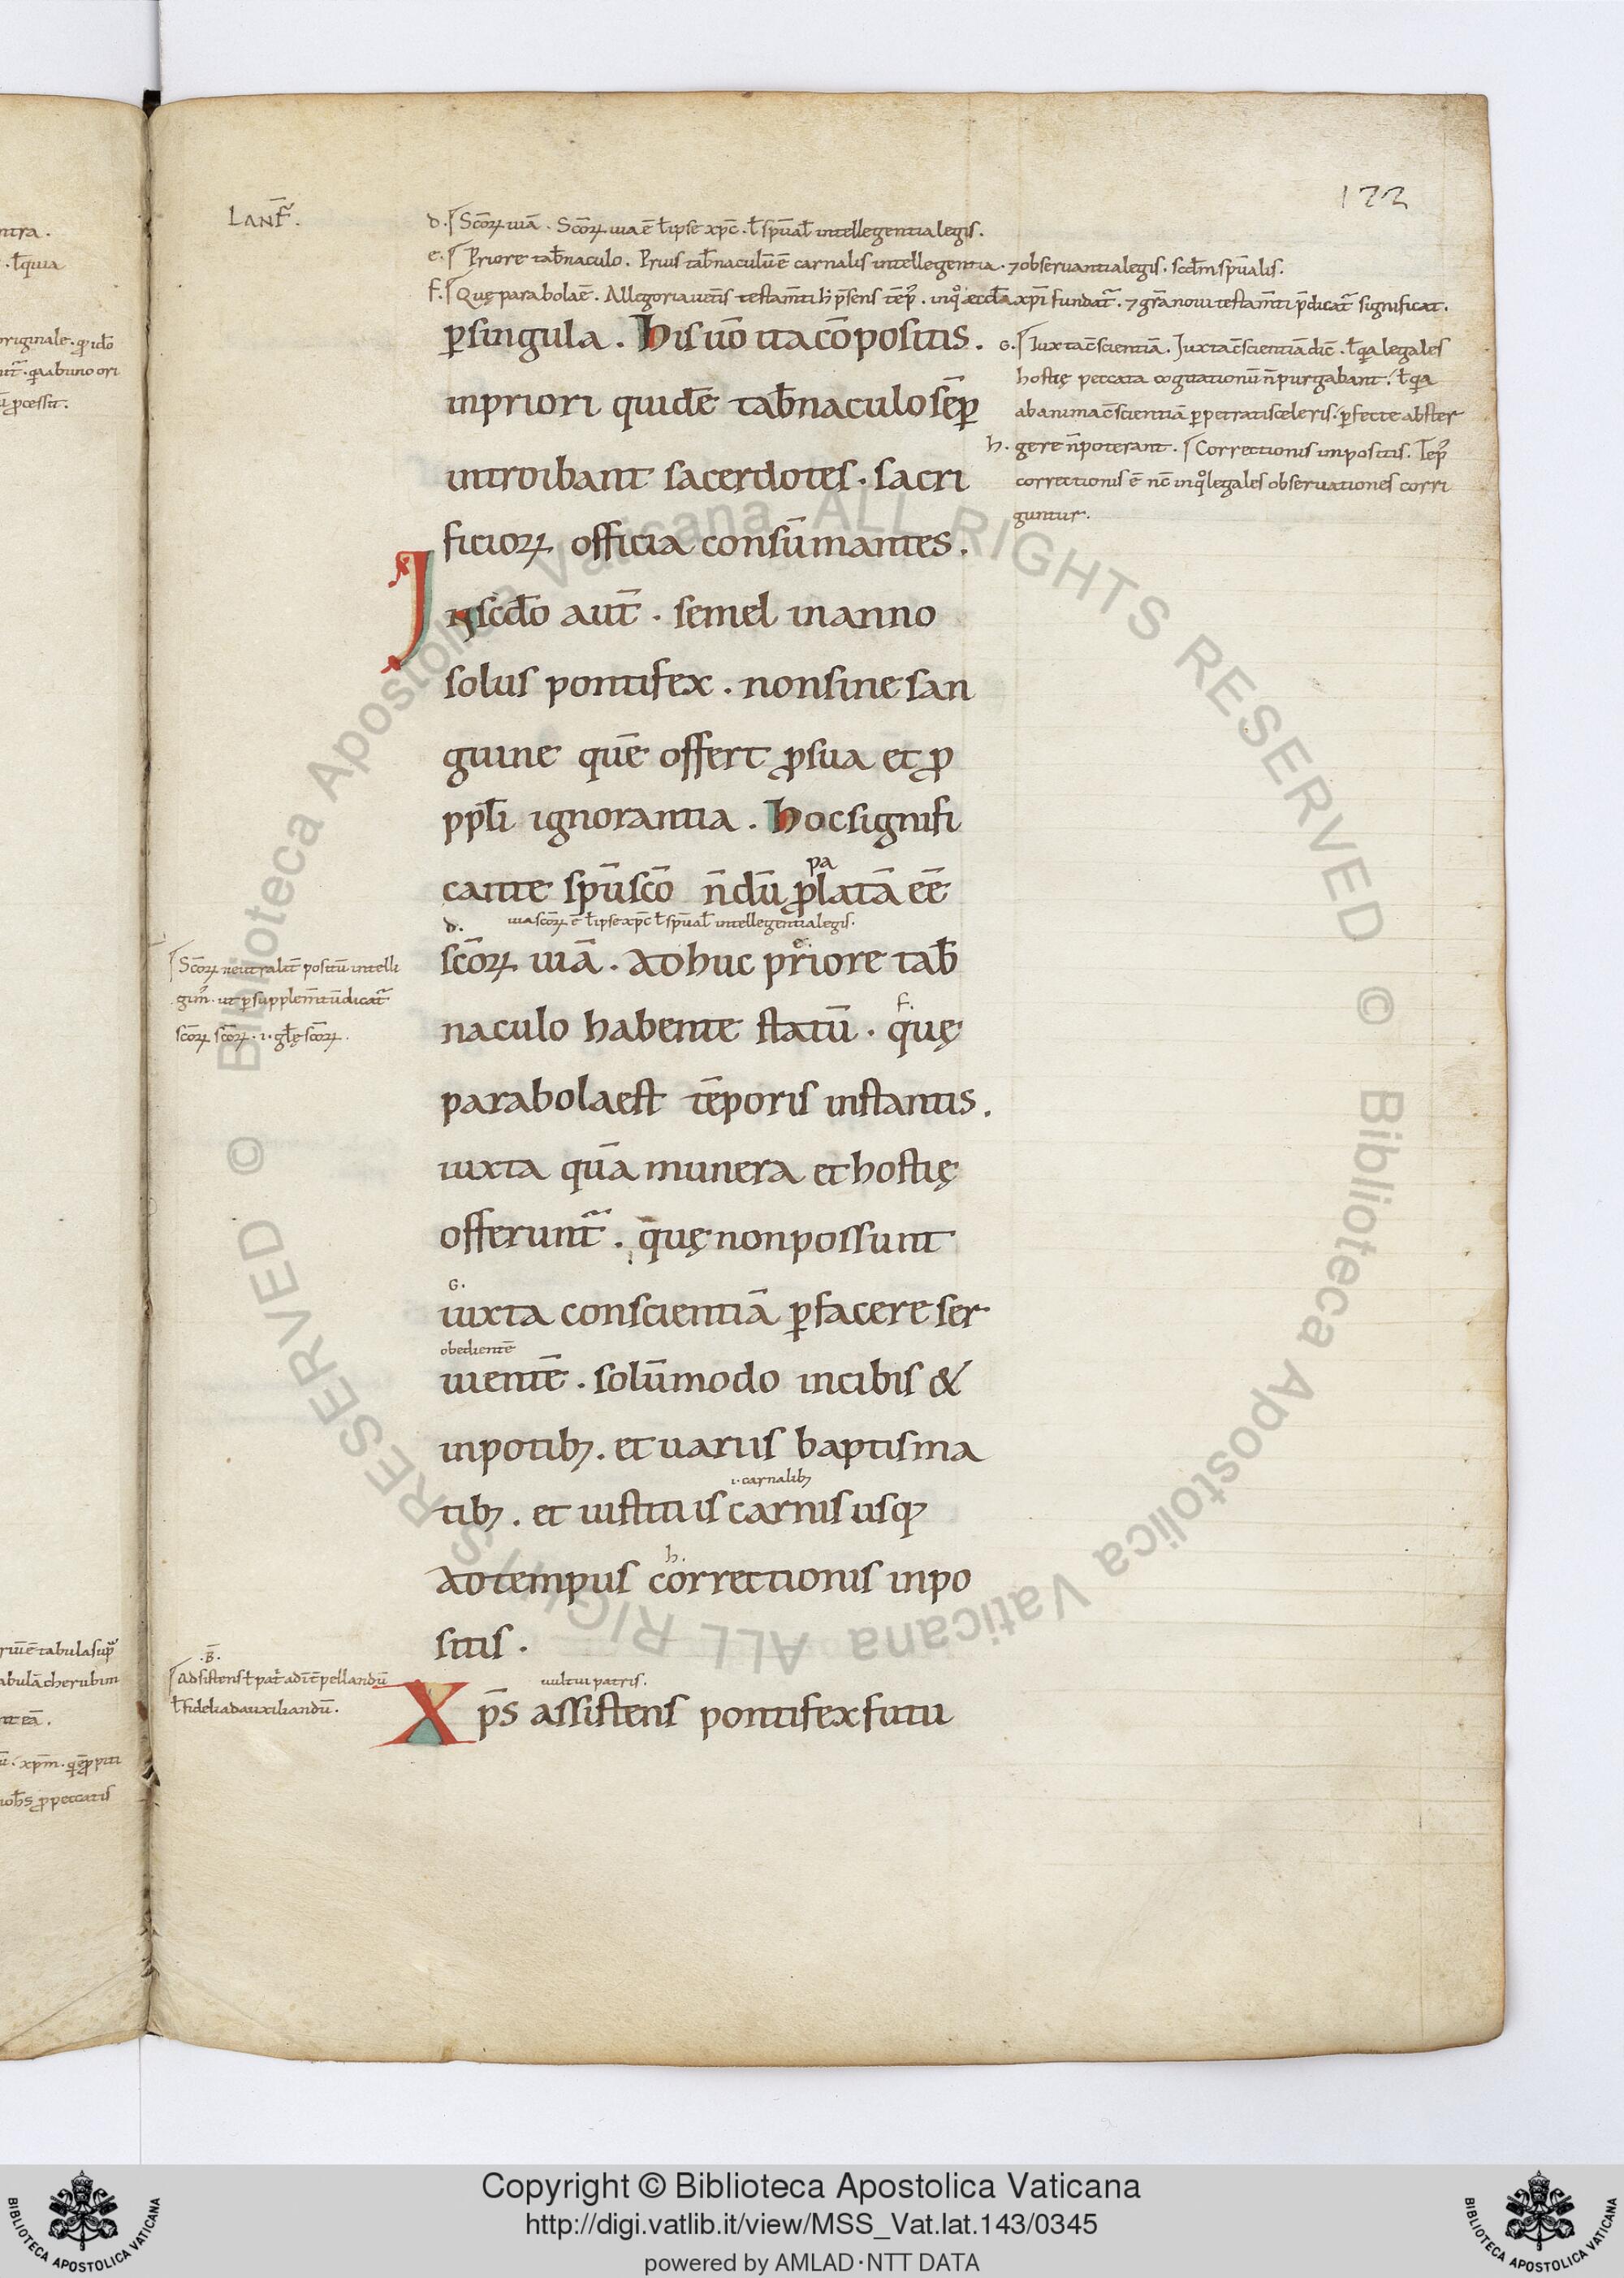 172
Lanf̄r.
d. Scōꝝ uiā. Scōꝝ uia ē ł ipse xp̄c. ł sp̄ualˀ intellegentia legis.
e. Priore tab̄naculo. Prius tab̄naculū ē carnalis intellegentia. ⁊ obseruantia legis. scd̄m sp̄ualis.
f. Quę parabola ē. Allegoria uet̄is testam̄ti h̄ p̄sens tēp̉. in qͦ æccl̄a xp̄i fundat᷑. ⁊ gr̄a noui testam̄ti p̄dicat᷑ significat.
ꝑ singula. His uō ita cōpositis.
in priori quidē tab̄naculo sēꝑ
introibant sacerdotes. sacri
ficioꝝ officia consūmantes.
In scd̄o aut̄. semel in anno
solus pontifex. non sine san
guine quē offert ꝓ sua et ꝓ
pp̄li ignorantia. Hoc signifi
cante sp̄u scō n̄dū ꝓlatā eē
pa
uia scōꝝ ē ł ipse xp̄c ł sp̄ualˀ intellegentia legis.
d.
scōꝝ uiā. adhuc priore tab̄
e.
naculo habente statū. quę
f.
parabola est tēporis instantis.
iuxta quā munera et hostię
offerunt᷑. quę non possunt
G.
iuxta conscientiā ꝑfacere ser
obedientē
uientē. solūmodo in cibis &
in potibꝫ. et uariis baptisma
i. carnalibꝫ
tibꝫ. et iustitiis carnis usqꝫ
h.
ad tempus correctionis inpo
sitis.
uultui patris.
Xp̄s assistens pontifex futu
G. Iuxta c̄scientiā. Juxta c̄scientiā dic̄. ł q̄a legales
hostię peccata cogitationū n̄ purgabant. ł q̄a
ab anima c̄scientiā ꝑpetrati sceleris. ꝑfecte abster
gere n̄ poterant. h. Correctionis impositis. Tēp̉
correctionis ē nc̄ in qͦ legales obseruationes corri
guntur.
Scōꝝ neutralit̄ positū intelli
gim̉. ut ꝑ supplem̄tū dicat᷑
scōꝝ scōꝝ. i. gl̄ę scōꝝ.
.B̄.
Adsistens ł pat̄ ad int̄pellandū
ł fideli ad auxiliandū.
Copyright © Biblioteca Apostolica Vaticana
http://digi.vatlib.it/view/MSS_Vat.lat.143/0345
powered by AMLAD·NTT DATA
BIBLIOTECA APOSTOLICA VATICANA
BIBLIOTECA APOSTOLICA VATICANA
© Biblioteca Apostolica Vaticana ALL RIGHTS RESERVED
© Biblioteca Apostolica Vaticana ALL RIGHTS RESERVED